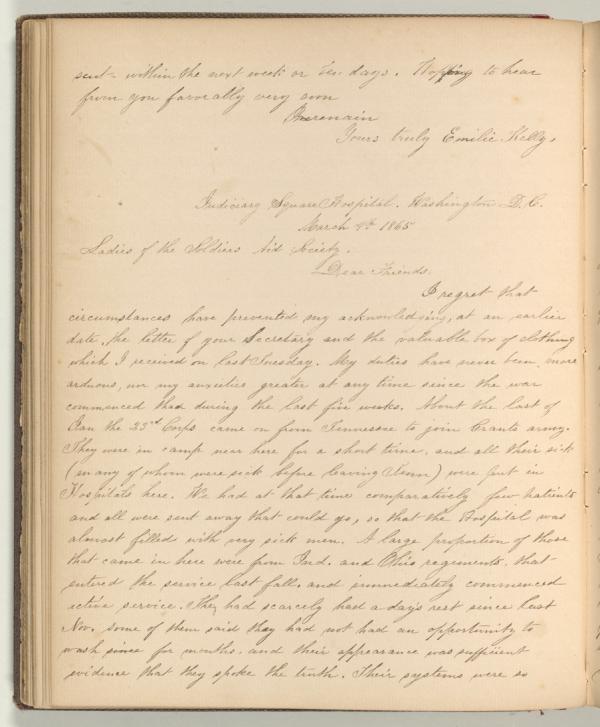 sent within the next week or ten days. Hoping to hear
from you favorably very soon
I remain
Yours truly Emilie Kelly.
Judiciary Square Hospital. Washington D.C.
March 9th 1865
Ladies of the Soldiers Aid Society.
Dear Friends.
I regret that
circumstances have prevented my acknowledging, at an earlier
date, the letter of your Secretary and the valuable box of clothing
which I received on last Tuesday. My duties have never been more
arduous, nor my anxieties greater at any time since the war
commenced than during the last five weeks. About the last of
Jan the 23rd Corps came on from Tennessee to join Grants army.
They were in camp near here for a short time, and all their sick
(many of whom were sick before leaving Tenn) were put in
Hospitals here. We had at that time comparatively few patients
and all were sent away that could go, so that the Hospital was
almost filled with very sick men. A large proportion of those
that came in here were from Ind. and Ohio regiments, that
entered the service last fall, and immediately commenced
active service. They had scarcely had a day's rest since last
Nov. some of them said they had not had an opportunity to
wash since for months. and their appearance was sufficient
evidence that they spoke the truth. Their systems were so